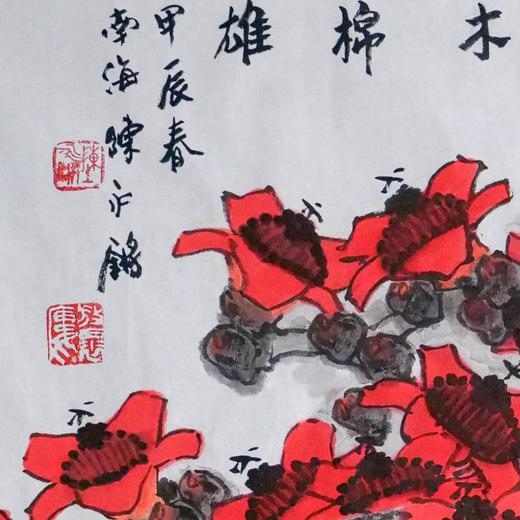 木棉雄
甲辰春
南海陳永鏘